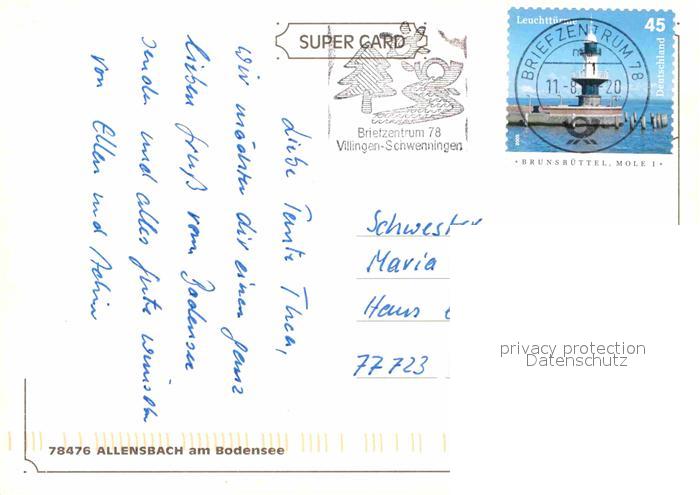 SUPER CARD
Briefzentrum 78
Villingen-Schwenningen
Leuchttürme
45
Deutschland
BRIEFZENTRUM 78
11.-8.
-20
BRUNSBÜTTEL, MOLE 1
Liebe Tante Thea,
wir möchten dir einen ganz
lieben Gruß vom Bodensee
senden und alles gute wünschen
von Ellen und Achim
Schwester
Maria
Haus
77723
privacy protection
Datenschutz
78476 ALLENSBACH am Bodensee